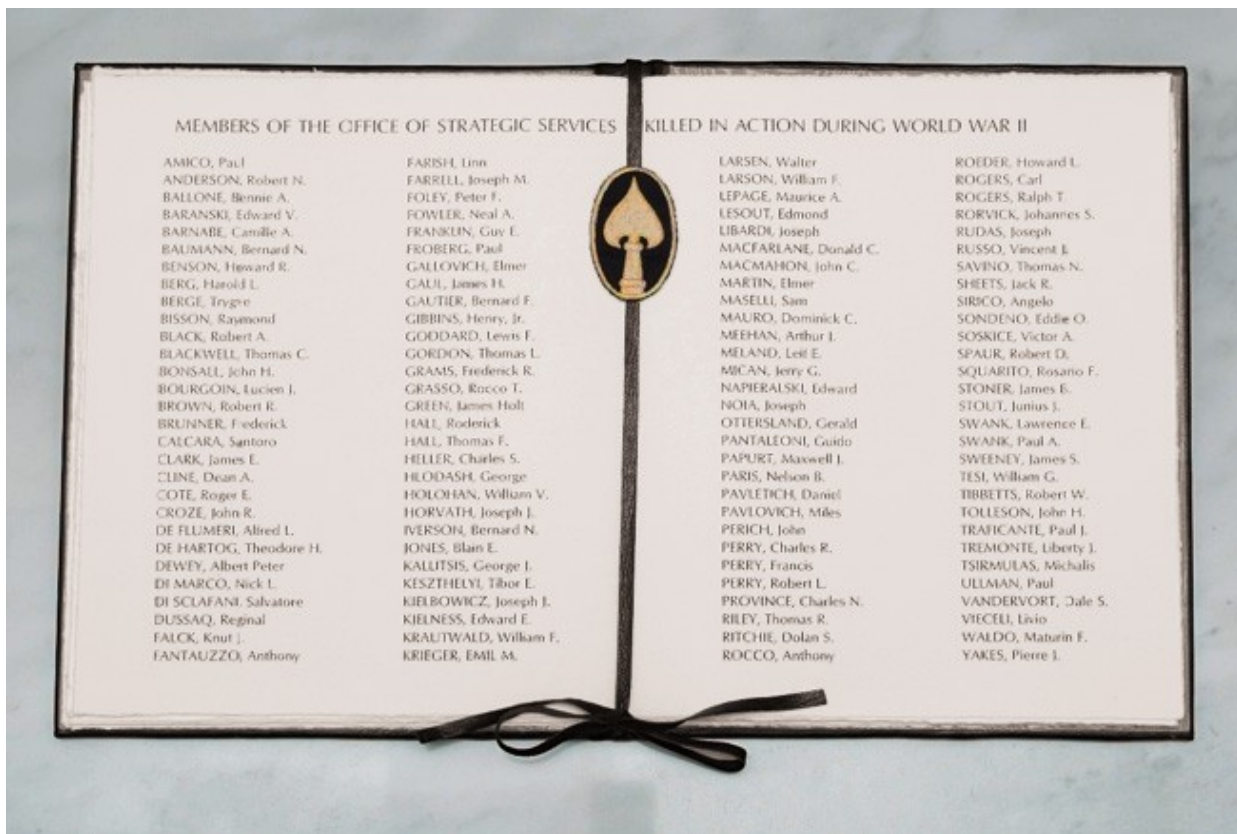 MEMBERS OF THE OFFICE OF STRATEGIC SERVICES KILLED IN ACTION DURING WORLD WAR II
AMICO, Paul
ANDERSON, Robert N.
BALLONE, Bennie A.
BARANSKI, Edward V.
BARNABE, Camille A.
BAUMANN, Bernard N.
BENSON, Howard R.
BERG, Harold L.
BERGE, Trygve
BISSON, Raymond
BLACK, Robert A.
BLACKWELL, Thomas C.
BONSALL, John H.
BOURGOIN, Lucien J.
BROWN, Robert R.
BRUNNER, Frederick
CALCARA, Santoro
CLARK, James E.
CLINE, Dean A.
COTE, Roger E.
CROZE, John R.
DE FLUMERI, Alfred L.
DE HARTOG, Theodore H.
DEWEY, Albert Peter
DI MARCO, Nick L.
DI SCLAFANI, Salvatore
DUSSAQ, Reginal
FALCK, Knut J.
FANTAUZZO, Anthony
FARISH, Linn
FARRELL, Joseph M.
FOLEY, Peter F.
FOWLER, Neal A.
FRANKLIN, Guy E.
FROBERG, Paul
GALLOVICH, Elmer
GAUL, James H.
GAUTIER, Bernard F.
GIBBINS, Henry, Jr.
GODDARD, Lewis F.
GORDON, Thomas L.
GRAMS, Frederick R.
GRASSO, Rocco T.
GREEN, James Holt
HALL, Roderick
HALL, Thomas F.
HELLER, Charles S.
HLODASH, George
HOLOHAN, William V.
HORVATH, Joseph J.
IVERSON, Bernard N.
JONES, Blain E.
KALLITSIS, George J.
KESZTHELYI, Tibor E.
KIELBOWICZ, Joseph J.
KJELNESS, Edward E.
KRAUTWALD, William F.
KRIEGER, EMIL M.
LARSEN, Walter
LARSON, William F.
LEPAGE, Maurice A.
LESOUT, Edmond
LIBARDI, Joseph
MACFARLANE, Donald C.
MACMAHON, John C.
MARTIN, Elmer
MASELLI, Sam
MAURO, Dominick C.
MEEHAN, Arthur J.
MELAND, Leif E.
MICAN, Jerry G.
NAPIERALSKI, Edward
NOIA, Joseph
OTTERSLAND, Gerald
PANTALEONI, Guido
PAPURT, Maxwell J.
PARIS, Nelson B.
PAVLETICH, Daniel
PAVLOVICH, Miles
PERICH, John
PERRY, Charles R.
PERRY, Francis
PERRY, Robert L.
PROVINCE, Charles N.
RILEY, Thomas R.
RITCHIE, Dolan S.
ROCCO, Anthony
ROEDER, Howard L.
ROGERS, Carl
ROGERS, Ralph T
RORVICK, Johannes S.
RUDAS, Joseph
RUSSO, Vincent J.
SAVINO, Thomas N.
SHEETS, Jack R.
SIRICO, Angelo
SONDENO, Eddie O.
SOSKICE, Victor A.
SPAUR, Robert D.
SQUARITO, Rosario F.
STONER, James B.
STOUT, Junius J.
SWANK, Lawrence E.
SWANK, Paul A.
SWEENEY, James S.
TESI, William G.
TIBBETTS, Robert W.
TOLLESON, John H.
TRAFICANTE, Paul J.
TREMONTE, Liberty J.
TSIRMULAS, Michalis
ULLMAN, Paul
VANDERVORT, Dale S.
VIECELI, Livio
WALDO, Maturin F.
YAKES, Pierre J.